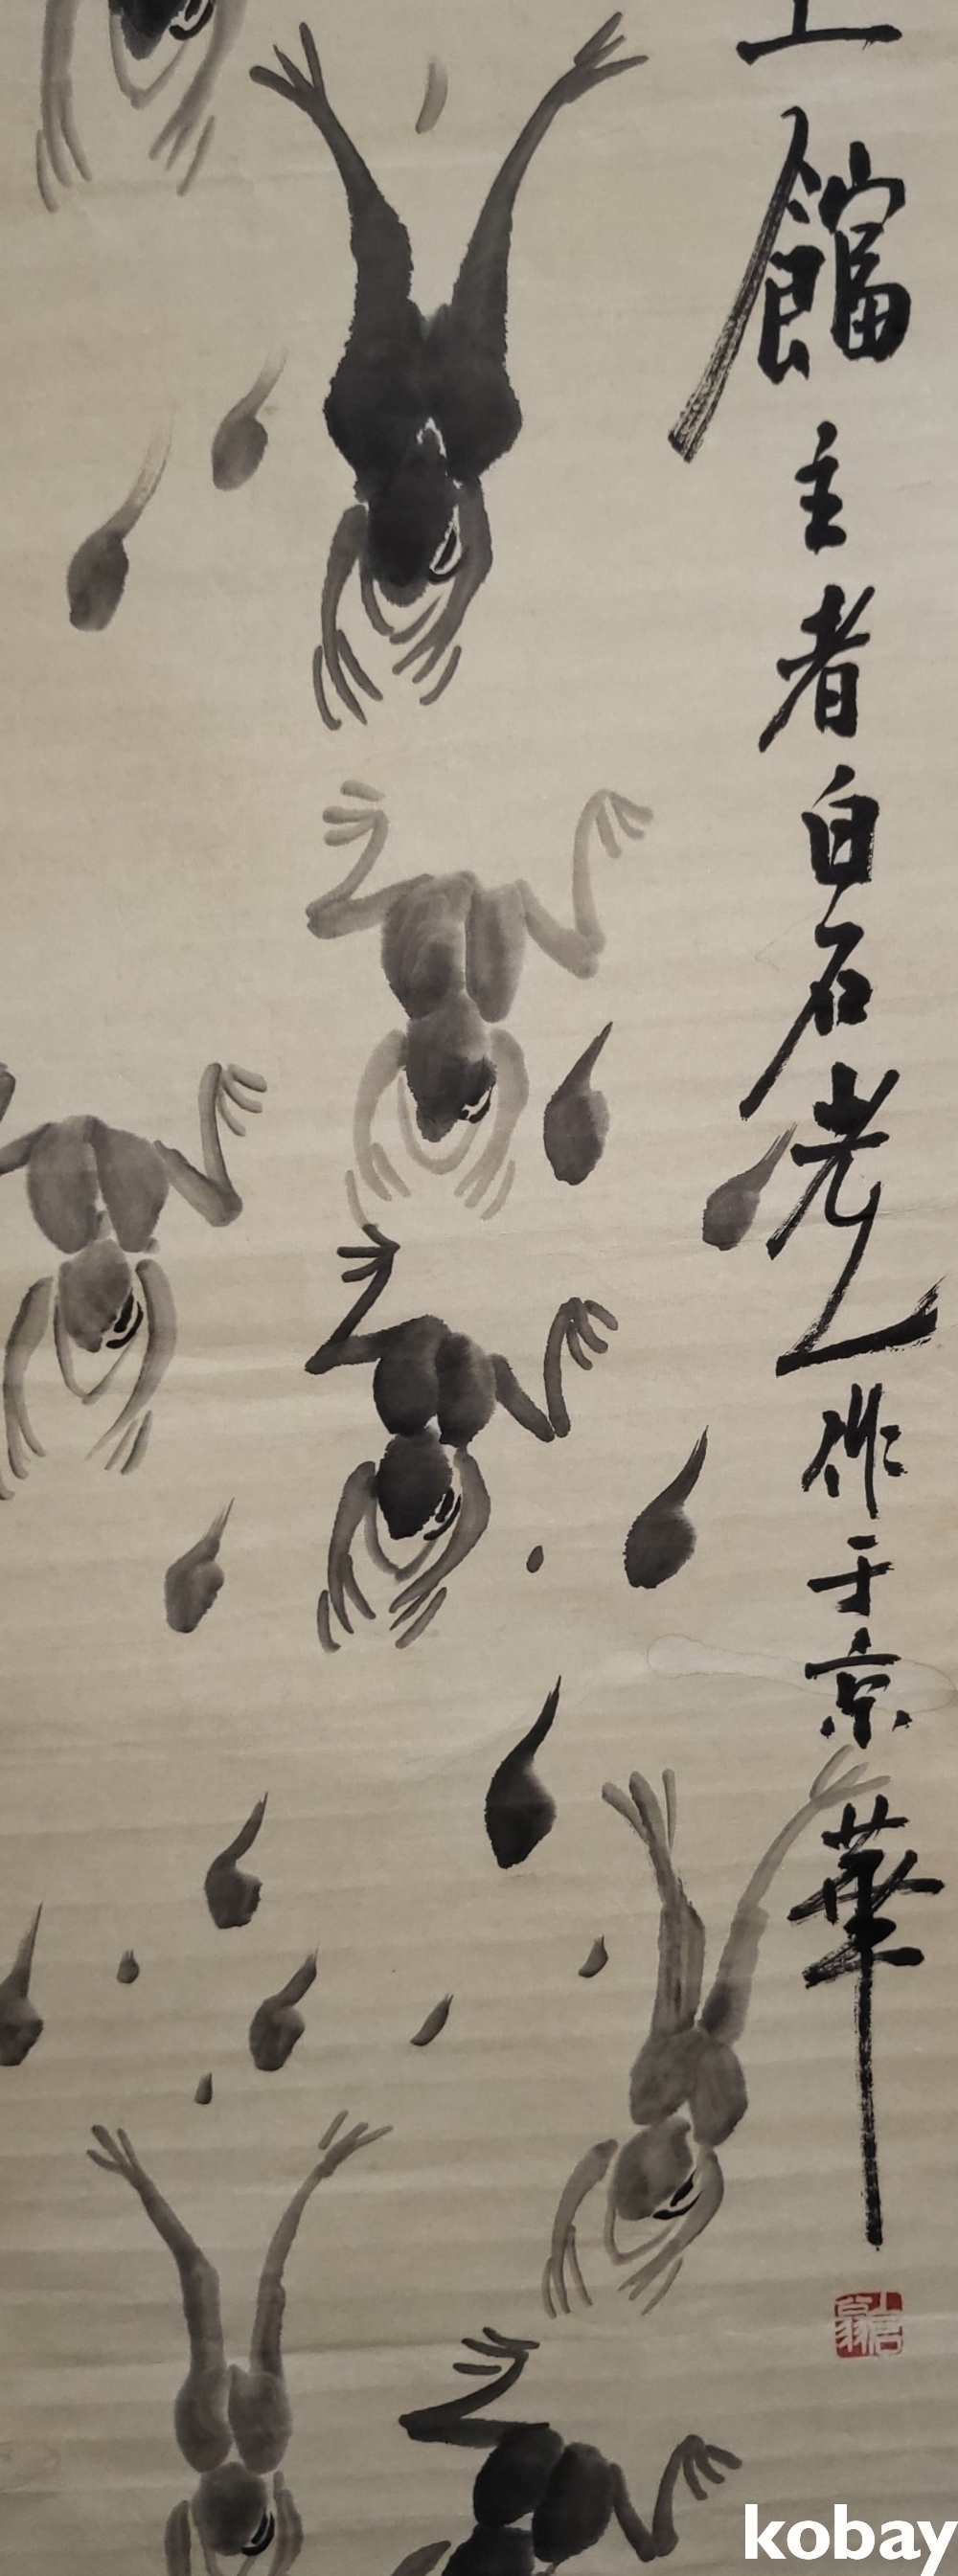 館主者白石老人作于京華
kobay